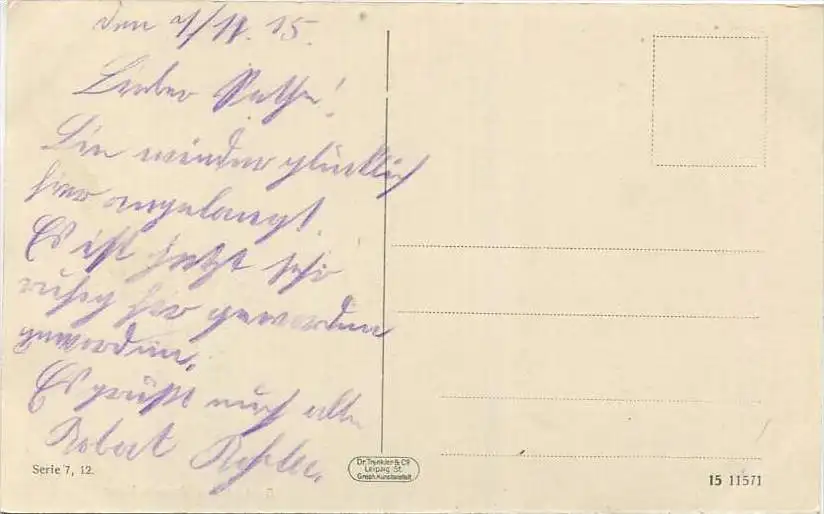 den 7/11. 15.
Lieber Pathe!
Bin wieder glücklich
hier angelangt.
Es ist jetzt sehr
ruhig hier geworden
geworden.
Es grüßt euch alle
Robert
Serie 7, 12.
Dr. Trenkler & Co.
Leipzig St.
Graph. Kunstanstalt
15 11571